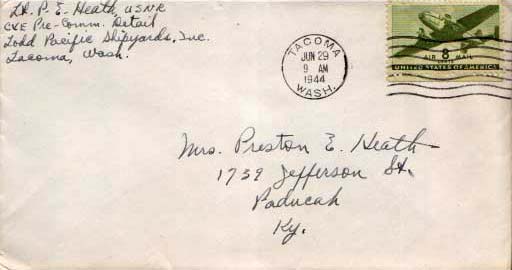 Lt. P. E. Heath, USNR
CVE Pre-Comm. Detail
Todd Pacific Shipyards, Inc.
Tacoma, Wash.
TACOMA
JUN 29
9 AM
1944
WASH.
8
AIR MAIL
CENTS
UNITED STATES OF AMERICA
Mrs. Preston E. Heath
1739 Jefferson St.
Paducah
Ky.